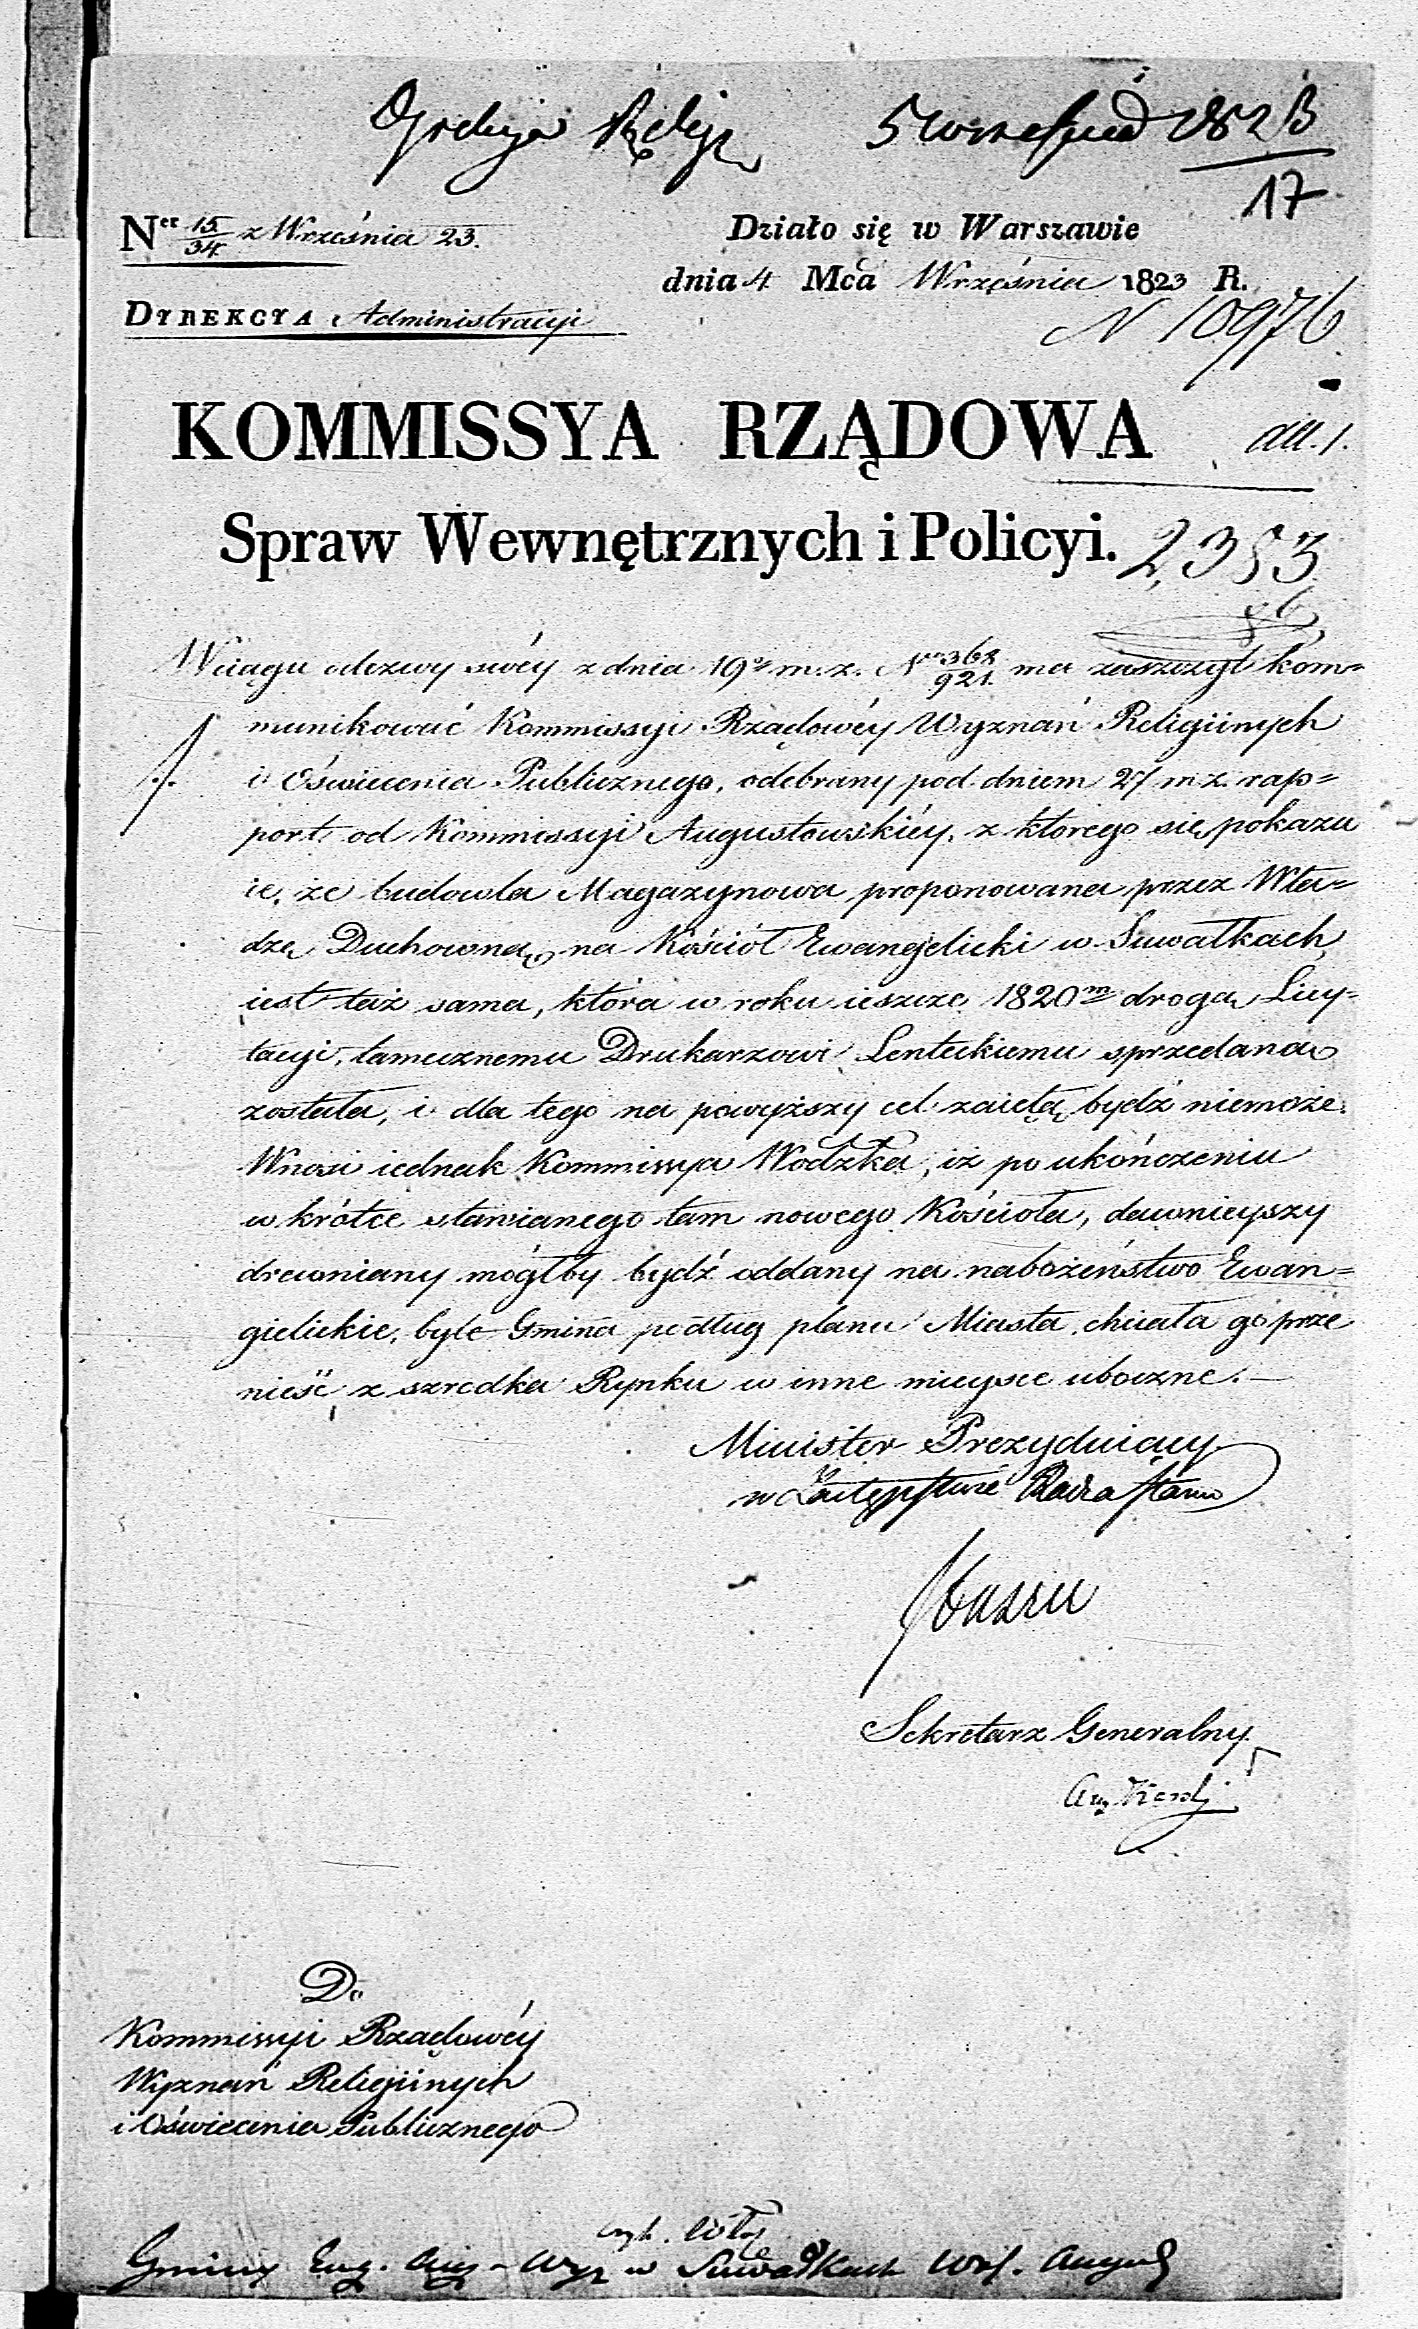 5 1823
17
Ner 15/34 z Września 23.
Działo się w Warszawie
dnia 4 Mca Września 1823 R.
DYREKCYA Administracyi
N 10976
KOMMISSYA RZĄDOWA
all. 1.
Spraw Wewnętrznych i Policyi.
2,353
W ciągu odezwy swéy z dnia 19o m. z. Nro 368/921. ma zaszczyt kom=
munikować Kommissyi Rządowéy Wyznań Religiinych
i Oświecenia Publicznego, odebrany pod dniem 27 m z. rap=
port od Kommissyi Augustowskiéy, z którego się pokazu
ie, że budowla Magazynowa proponowana przez Wła=
dzę Duchowną na Kościół Ewanjelicki w Suwałkach
iest taż sama, która w roku ieszcze 1820m drogą Licy=
tacyi, tamecznemu Drukarzowi sprzedaną
została, i dla tego na powyższy cel zaiętą bydź niemoże.
Wnosi iednak Kommissya Wodzka, iż po ukończeniu
wkrótce stawianego tam nowego Kościoła, dawnieyszy
drewniany mógłby bydź oddany na nabożeństwo Ewan=
gielickie, byle Gmina podług planu Miasta, chciała go prze
nieść z szrodka Rynku w inne mieysce uboczne. —
Minister Prezyduiący
w Zastępstwie Radca Stanu
Sekretarz Generalny
Do
Kommissyi Rządowéy
Wyznań Religiinych
i Oświecenia Publicznego
Gminy w Suwałkach